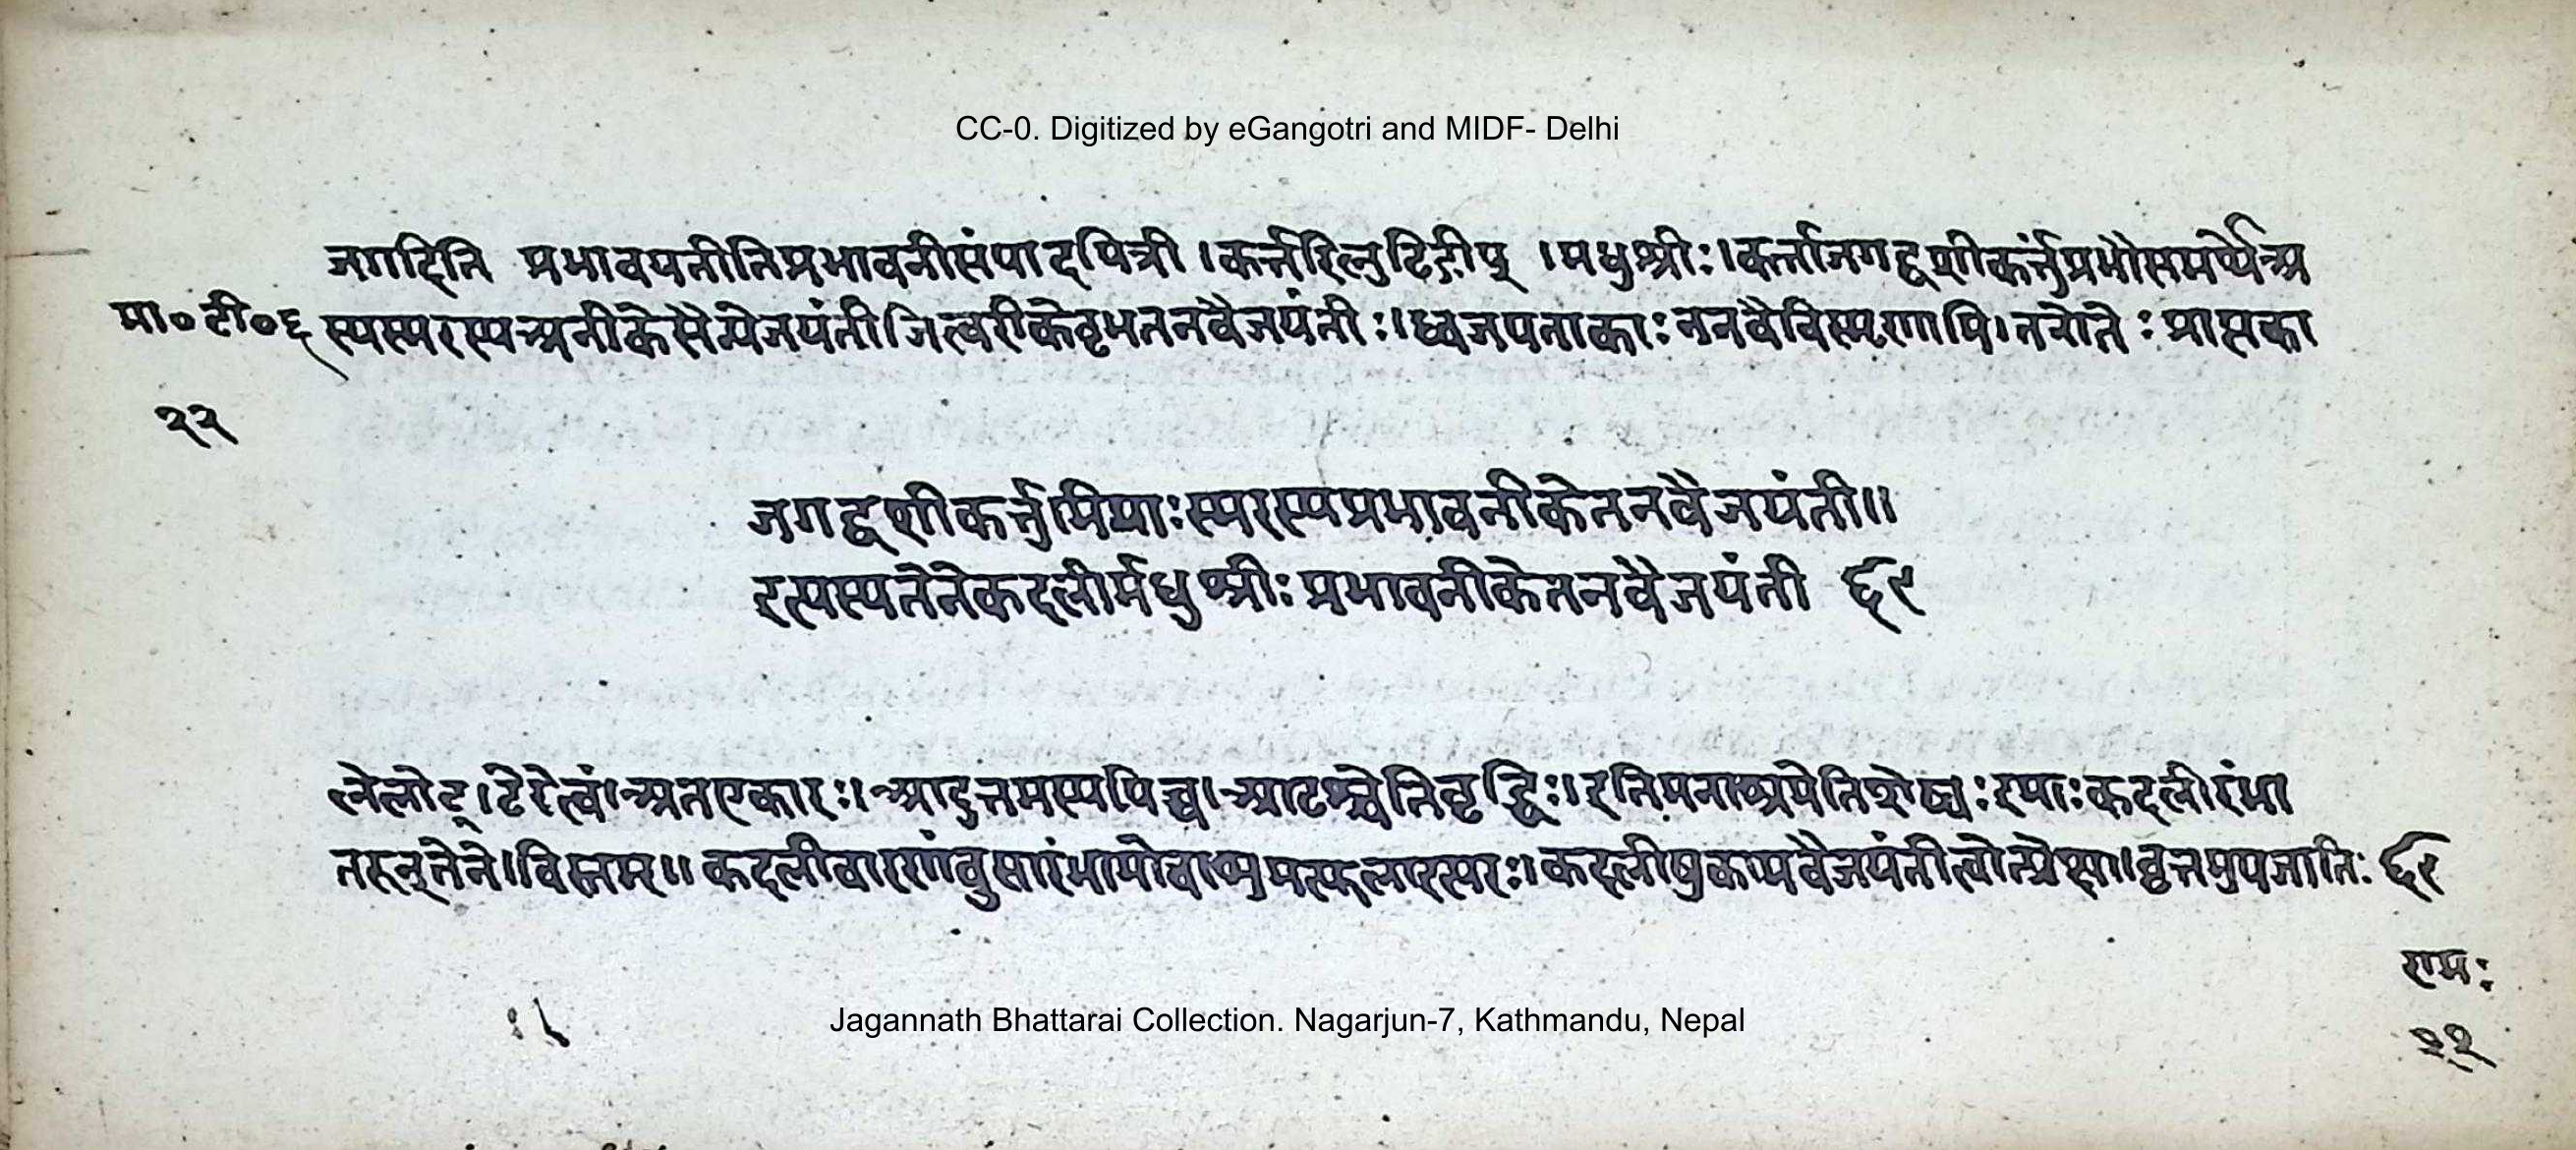 CC-0. Digitized by eGangotri and MIDF- Delhi
जगदिति प्रभावयतीतिप्रभावनीसंपादयित्री । कर्त्तरिल्युटिङीप् । मधुश्रीः । कर्त्ताजगद्वशीकर्त्तुंप्रभौसमर्थेअ
मा॰ टी॰ ६ स्यस्मरस्यअनीकेसैन्येजयंती । जित्वरीकेतृमतनवैजयंतीः । ध्वजपताकाः ननवैविस्मरणापि । ततोतेः प्राप्तका
२२
जगद्वशीकर्त्तुमिमाःस्मरस्यप्रभावनीकेतनवैजयंती ॥
इत्यस्यतेनेकदलीर्मधुश्रीः प्रभावनीकेतनवैजयंती ६९
लेलोट् । टेरेत्वं । अतएकारः । आदुत्तमस्यपिच्च । आटश्चेतिवृद्धिः । इतिमनाश्रयेतिशेष्यः इमाः कदलीरंभा
तरून्तेने । विस्तमर ॥ कदलीवारणंवुसारंभामोचाश्वमत्फलारस्परः । कदलीषुकामवैजयंतीत्वोत्प्रेक्षा । वृत्तमुपजातिः ६९
रामः
२२
Jagannath Bhattarai Collection. Nagarjun-7, Kathmandu, Nepal